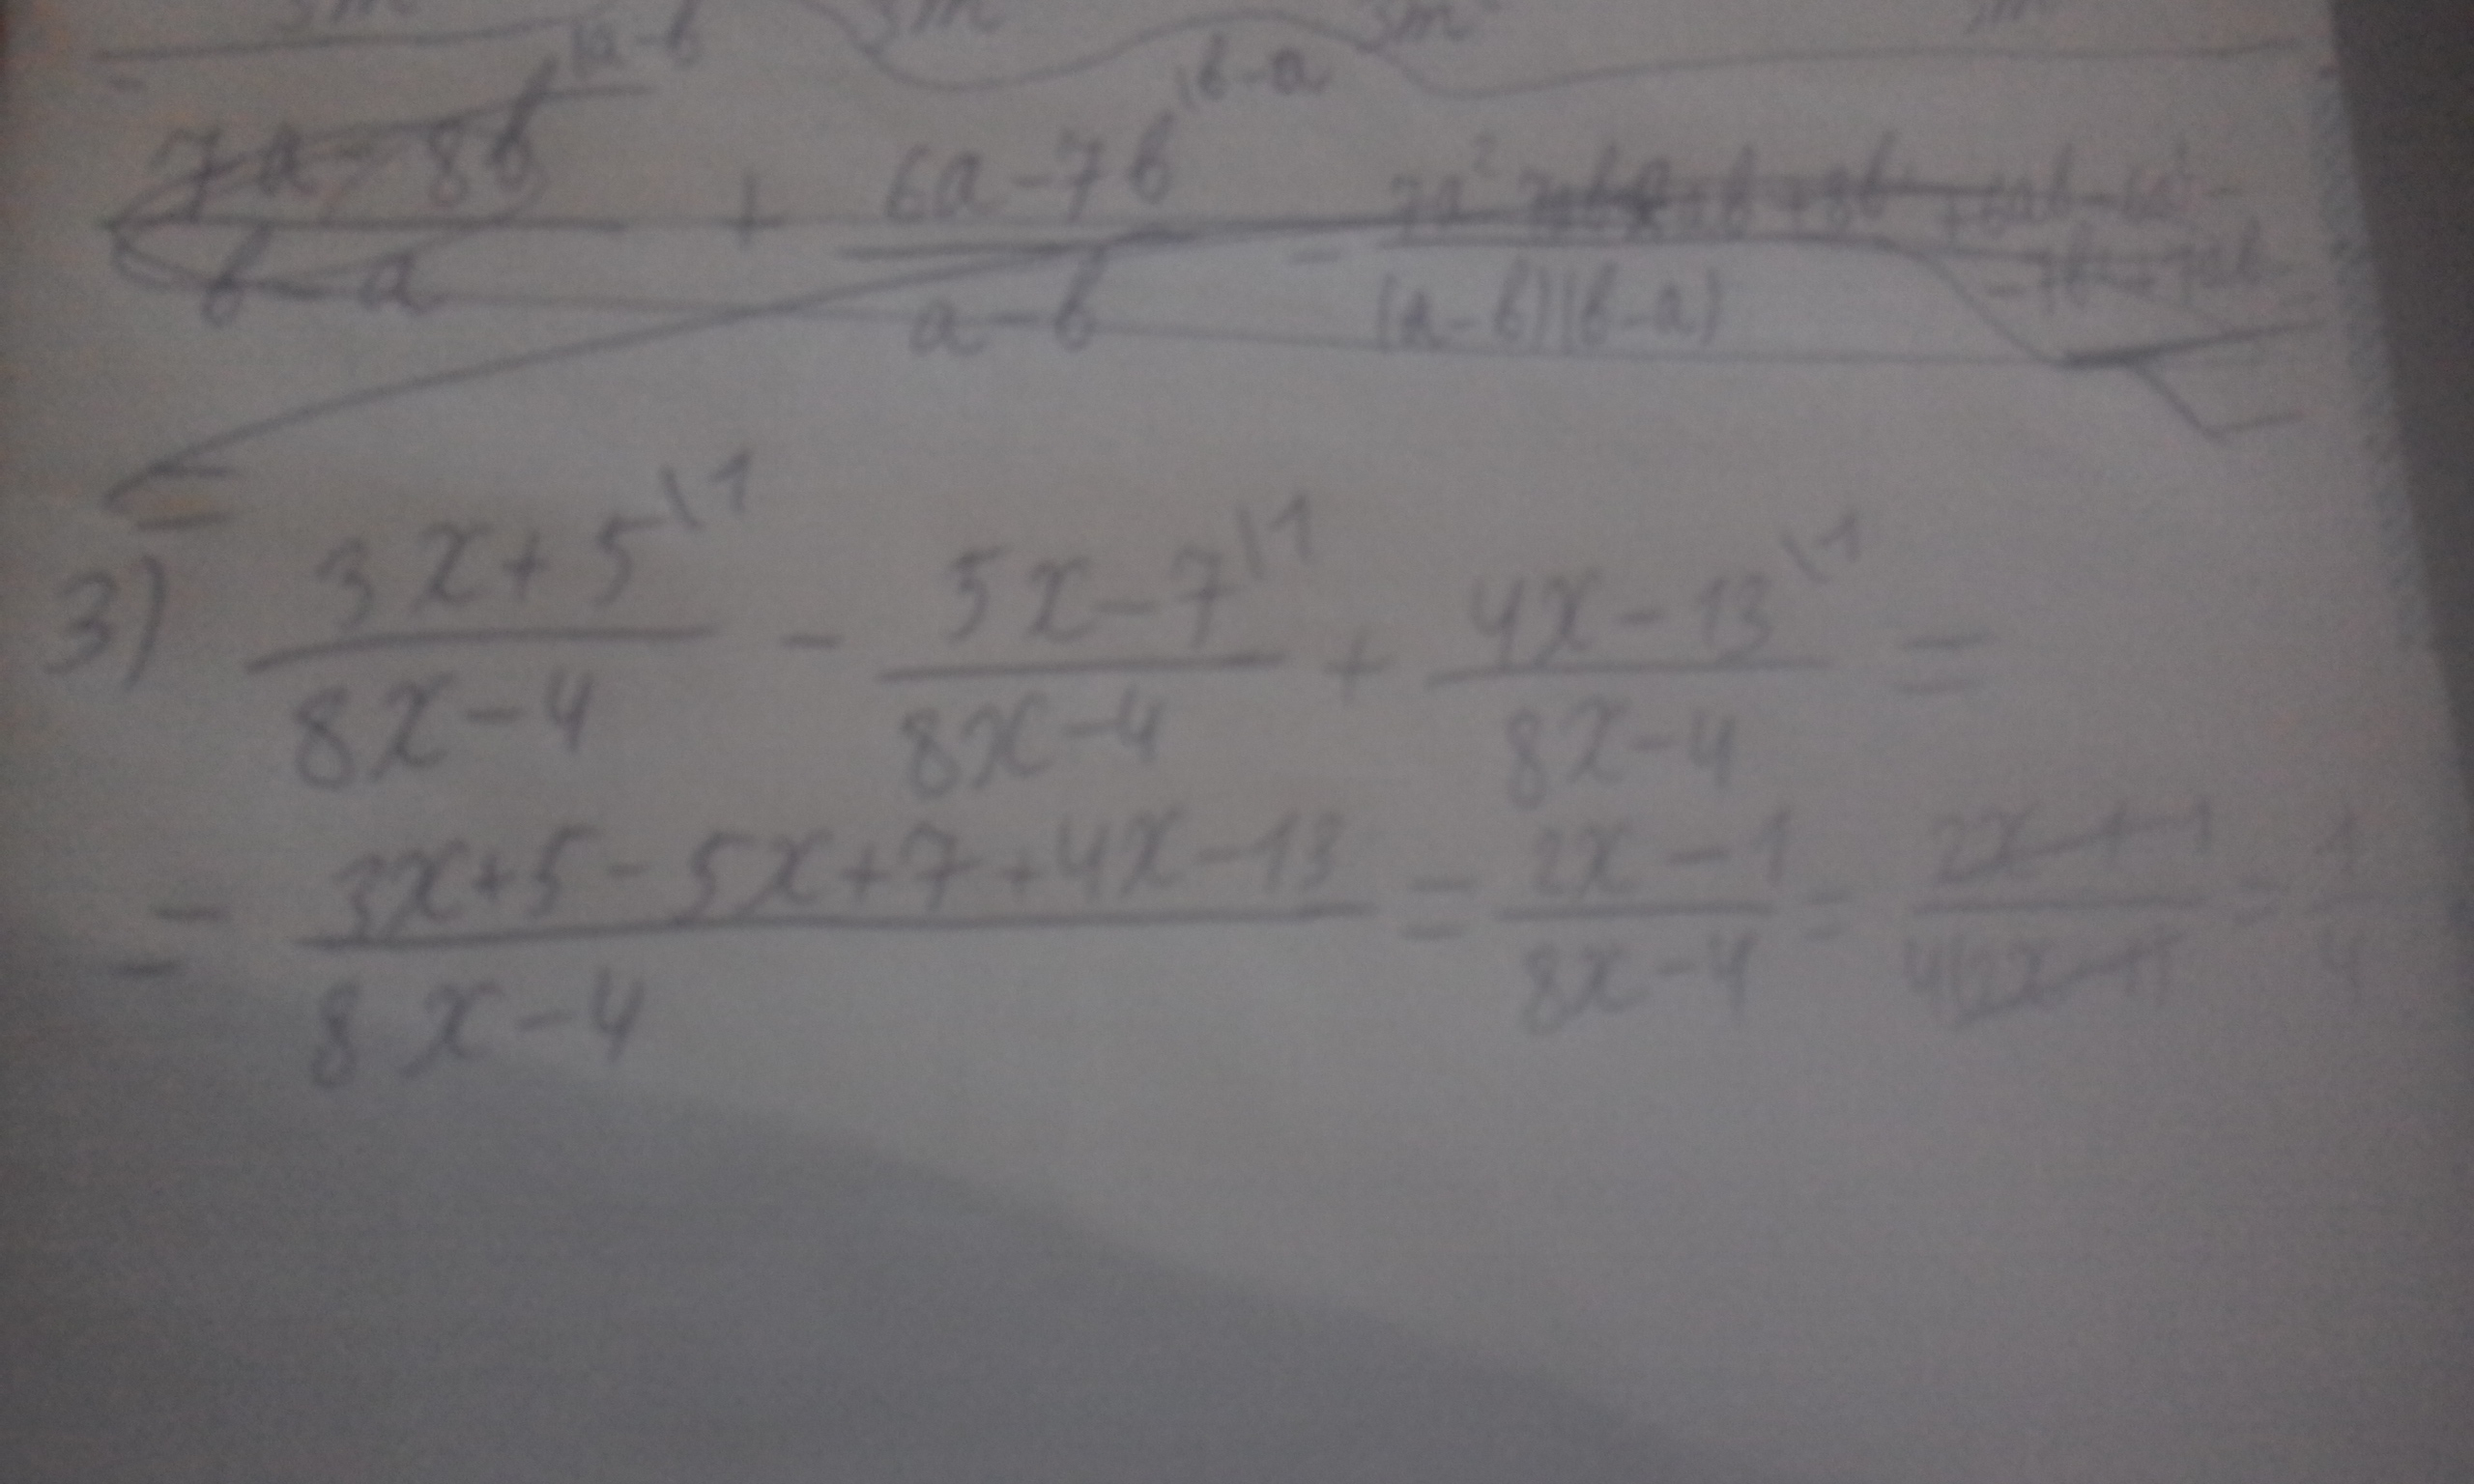 3m 3m 3m
7a-8b \a-b / b-a + 6a-7b \b-a / a-b = (a-b)(b-a)
3) 3x+5 \1 / 8x-4 - 5x-7 \1 / 8x-4 + 4x-13 \1 / 8x-4 =
= 3x+5-5x+7+4x-13 / 8x-4 = 2x-1 / 8x-4 = 2x-1 / 4(2x-1) = 1 / 4